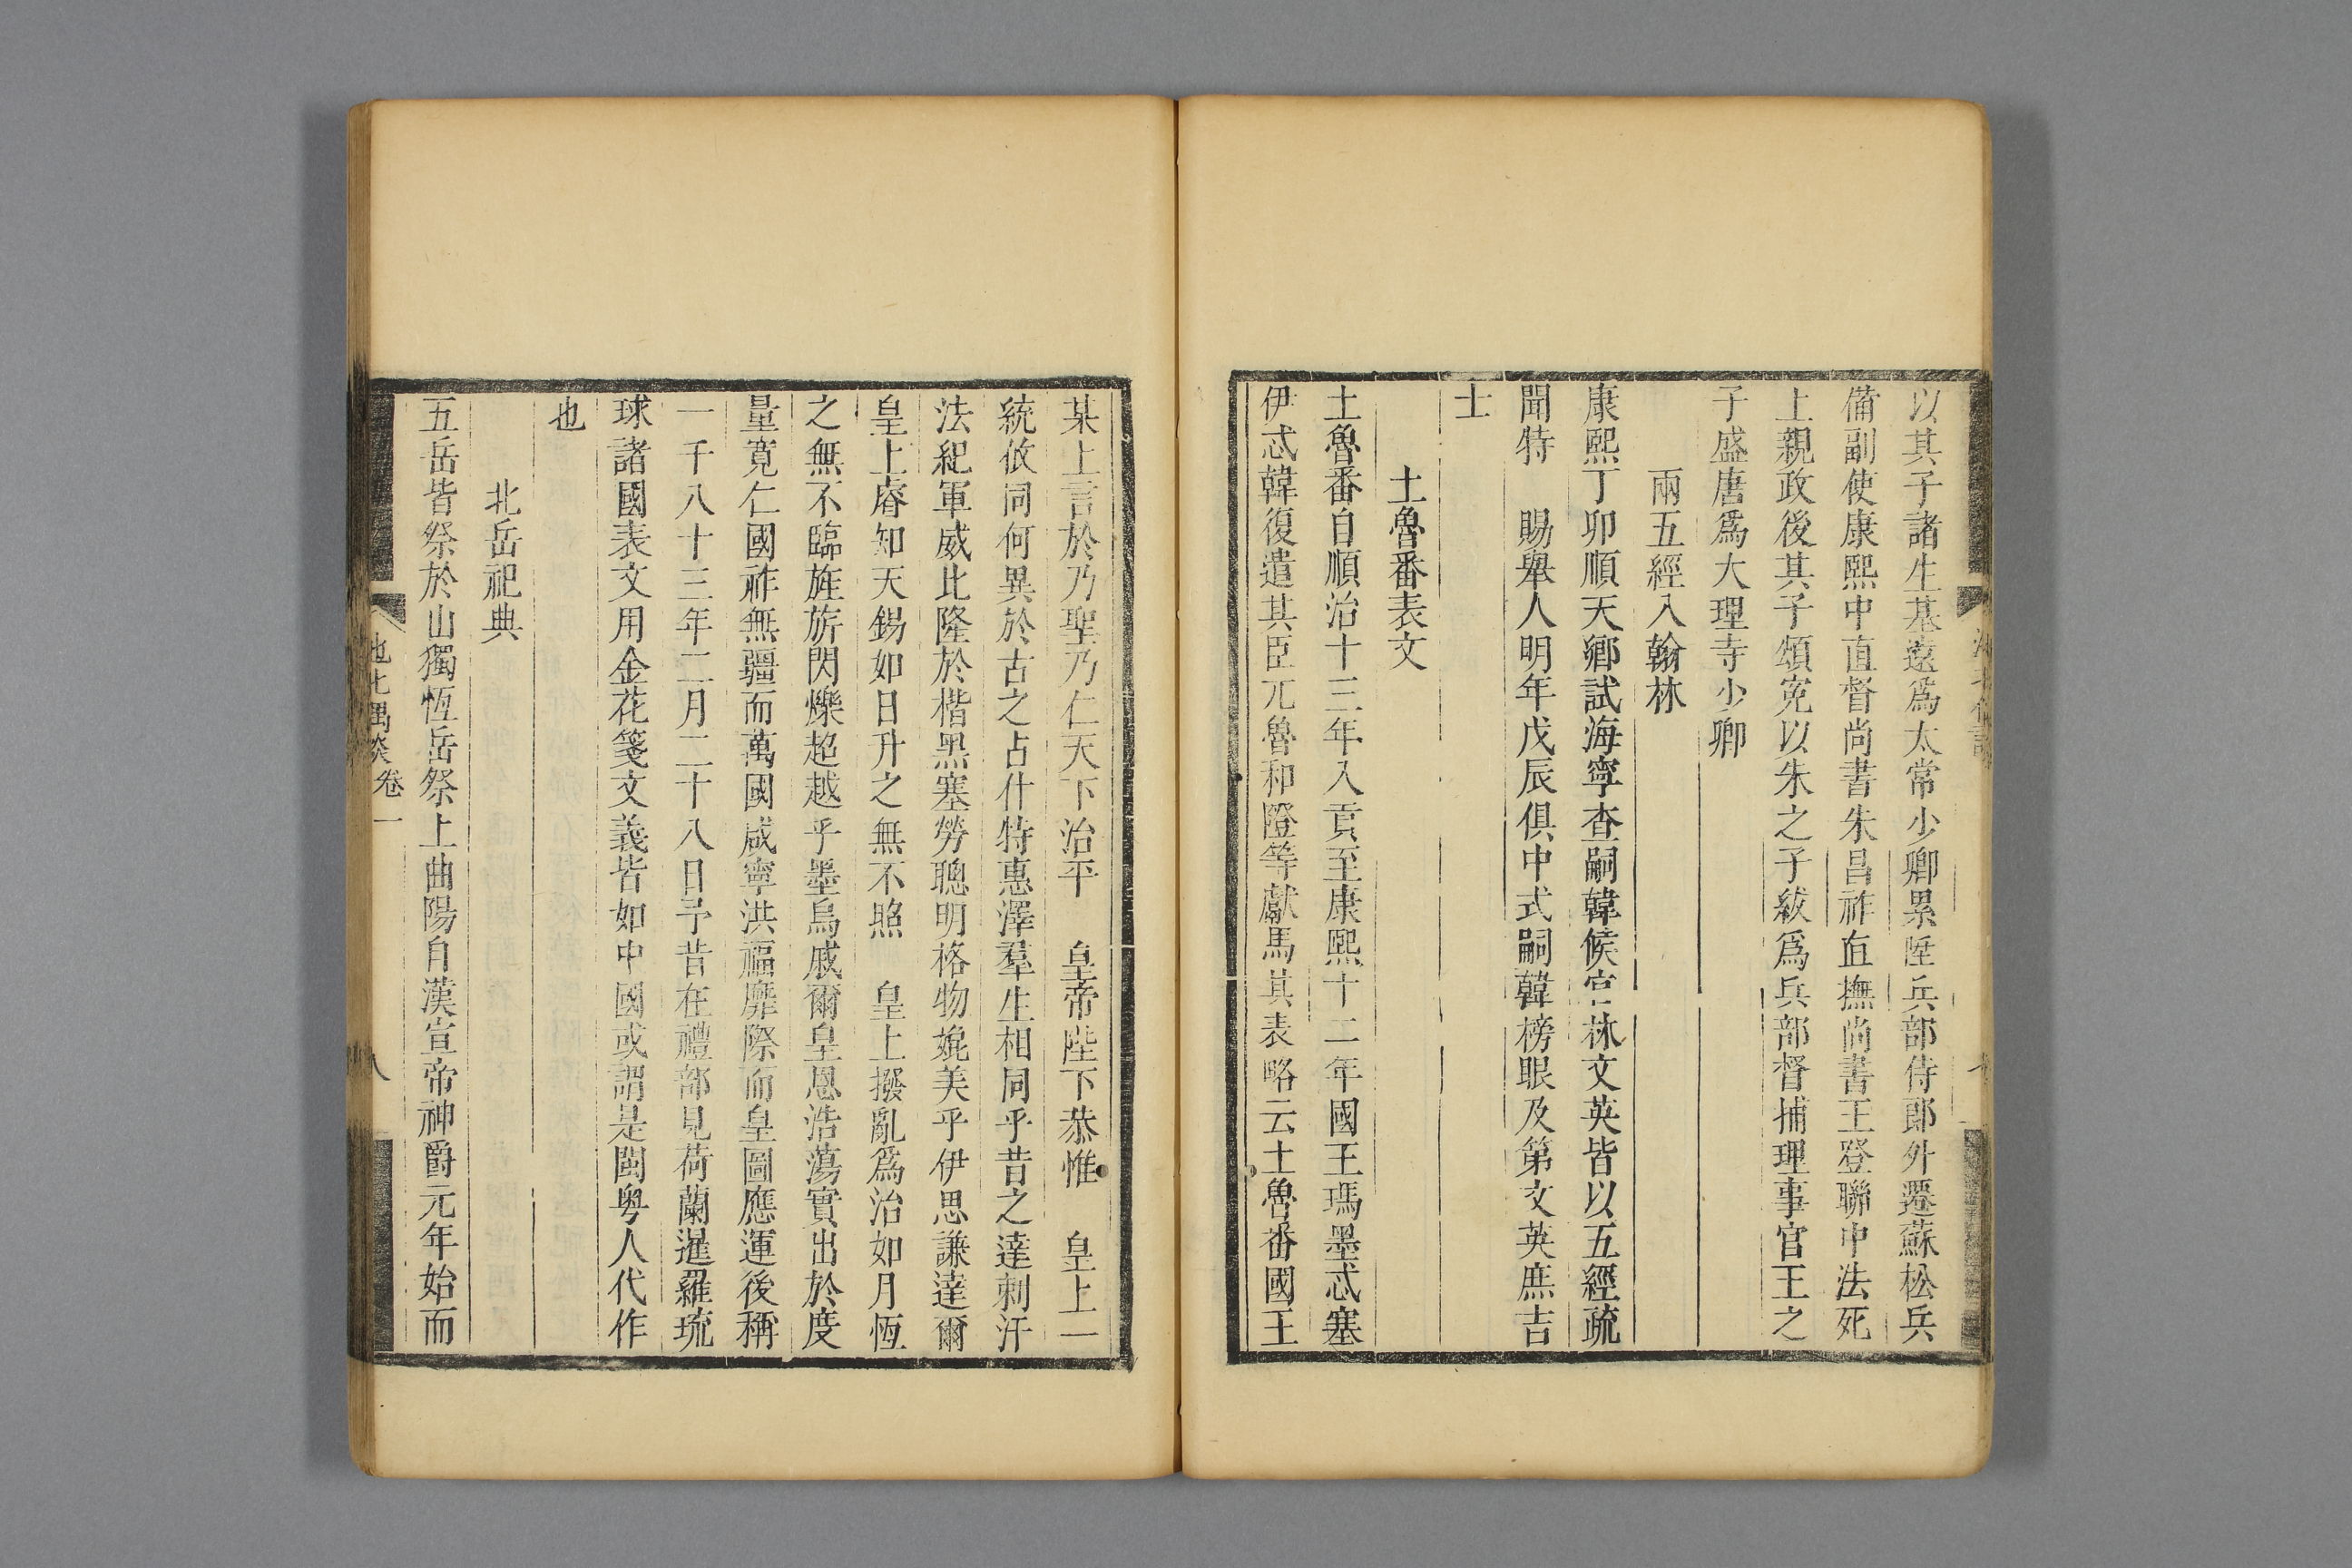 以其子諸生基遠爲太常少卿累陞兵部侍郎外遷蘇松兵
備副使康熙中直督尚書朱昌祚直撫尚書王登聯中法死
上親政後其子頌寃以朱之子紱爲兵部督捕理事官王之
子盛唐爲大理寺少卿
兩五經入翰林
康熙丁卯順天鄉試海寧查嗣韓候官林文英皆以五經疏
聞特　賜舉人明年戊辰俱中式嗣韓榜眼及第文英庶吉
士
土魯番表文
土魯番自順治十三年入貢至康熙十二年國王瑪墨忒塞
伊忒韓復遣其臣兀魯和隥等獻馬其表略云土魯番國王
某上言於乃聖乃仁天下治平　皇帝陛下恭惟　皇上一
統攸同何異於古之占什特惠澤羣生相同乎昔之達刺汗
法紀軍威比隆於楷黑塞勞聰明格物媲美乎伊思謙達爾
皇上睿知天錫如日升之無不照　皇上撥亂爲治如月恆
之無不臨旌旂閃爍超越乎墨烏戚爾皇恩浩蕩實出於度
量寬仁國祚無疆而萬國咸寧洪福靡際而皇圖應運後稱
一千八十三年二月二十八日予昔在禮部見荷蘭暹羅琉
球諸國表文用金花箋文義皆如中國或謂是閩粤人代作
也
北岳祀典
五岳皆祭於山獨恆岳祭上曲陽自漢宣帝神爵元年始而
池北偶談卷一
八